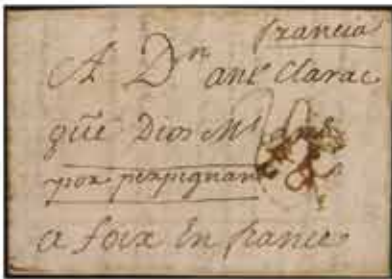 francia
A Dn ante Clarac
que Dios Ms ans
por perpignan
a foix En france